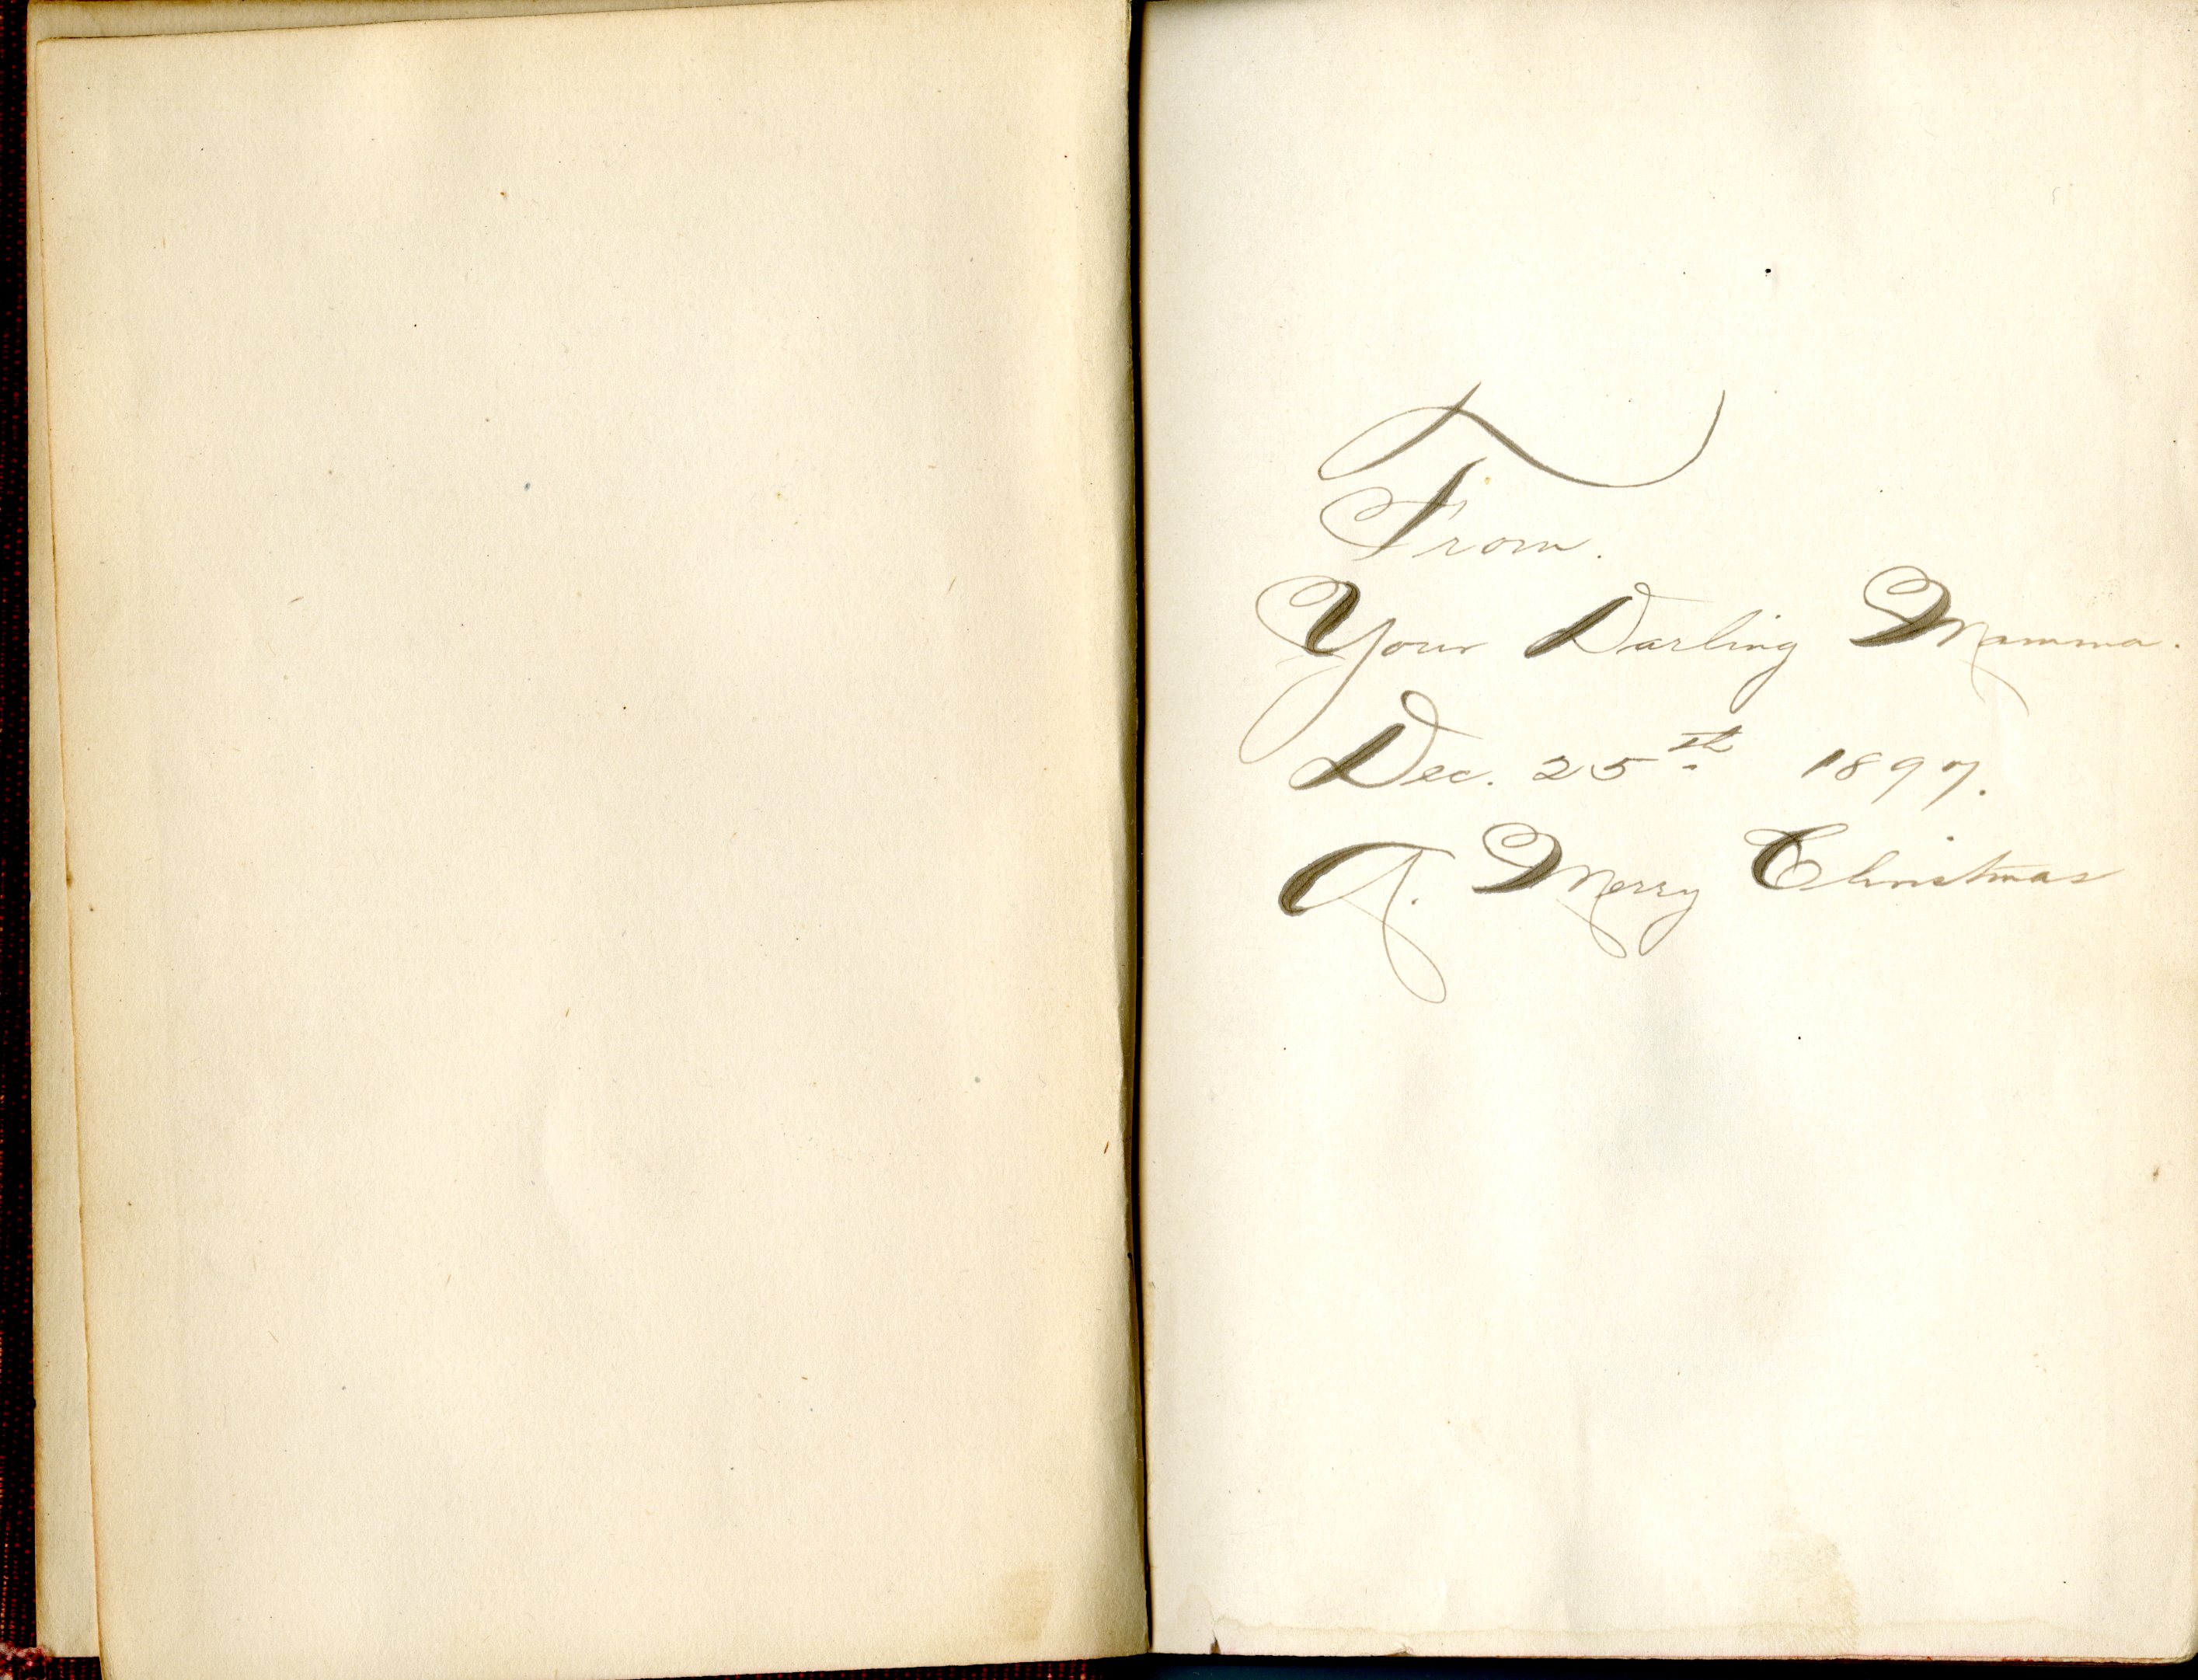 From.
Your Darling Mamma.
Dec. 25th 1897.
A. Merry Christmas